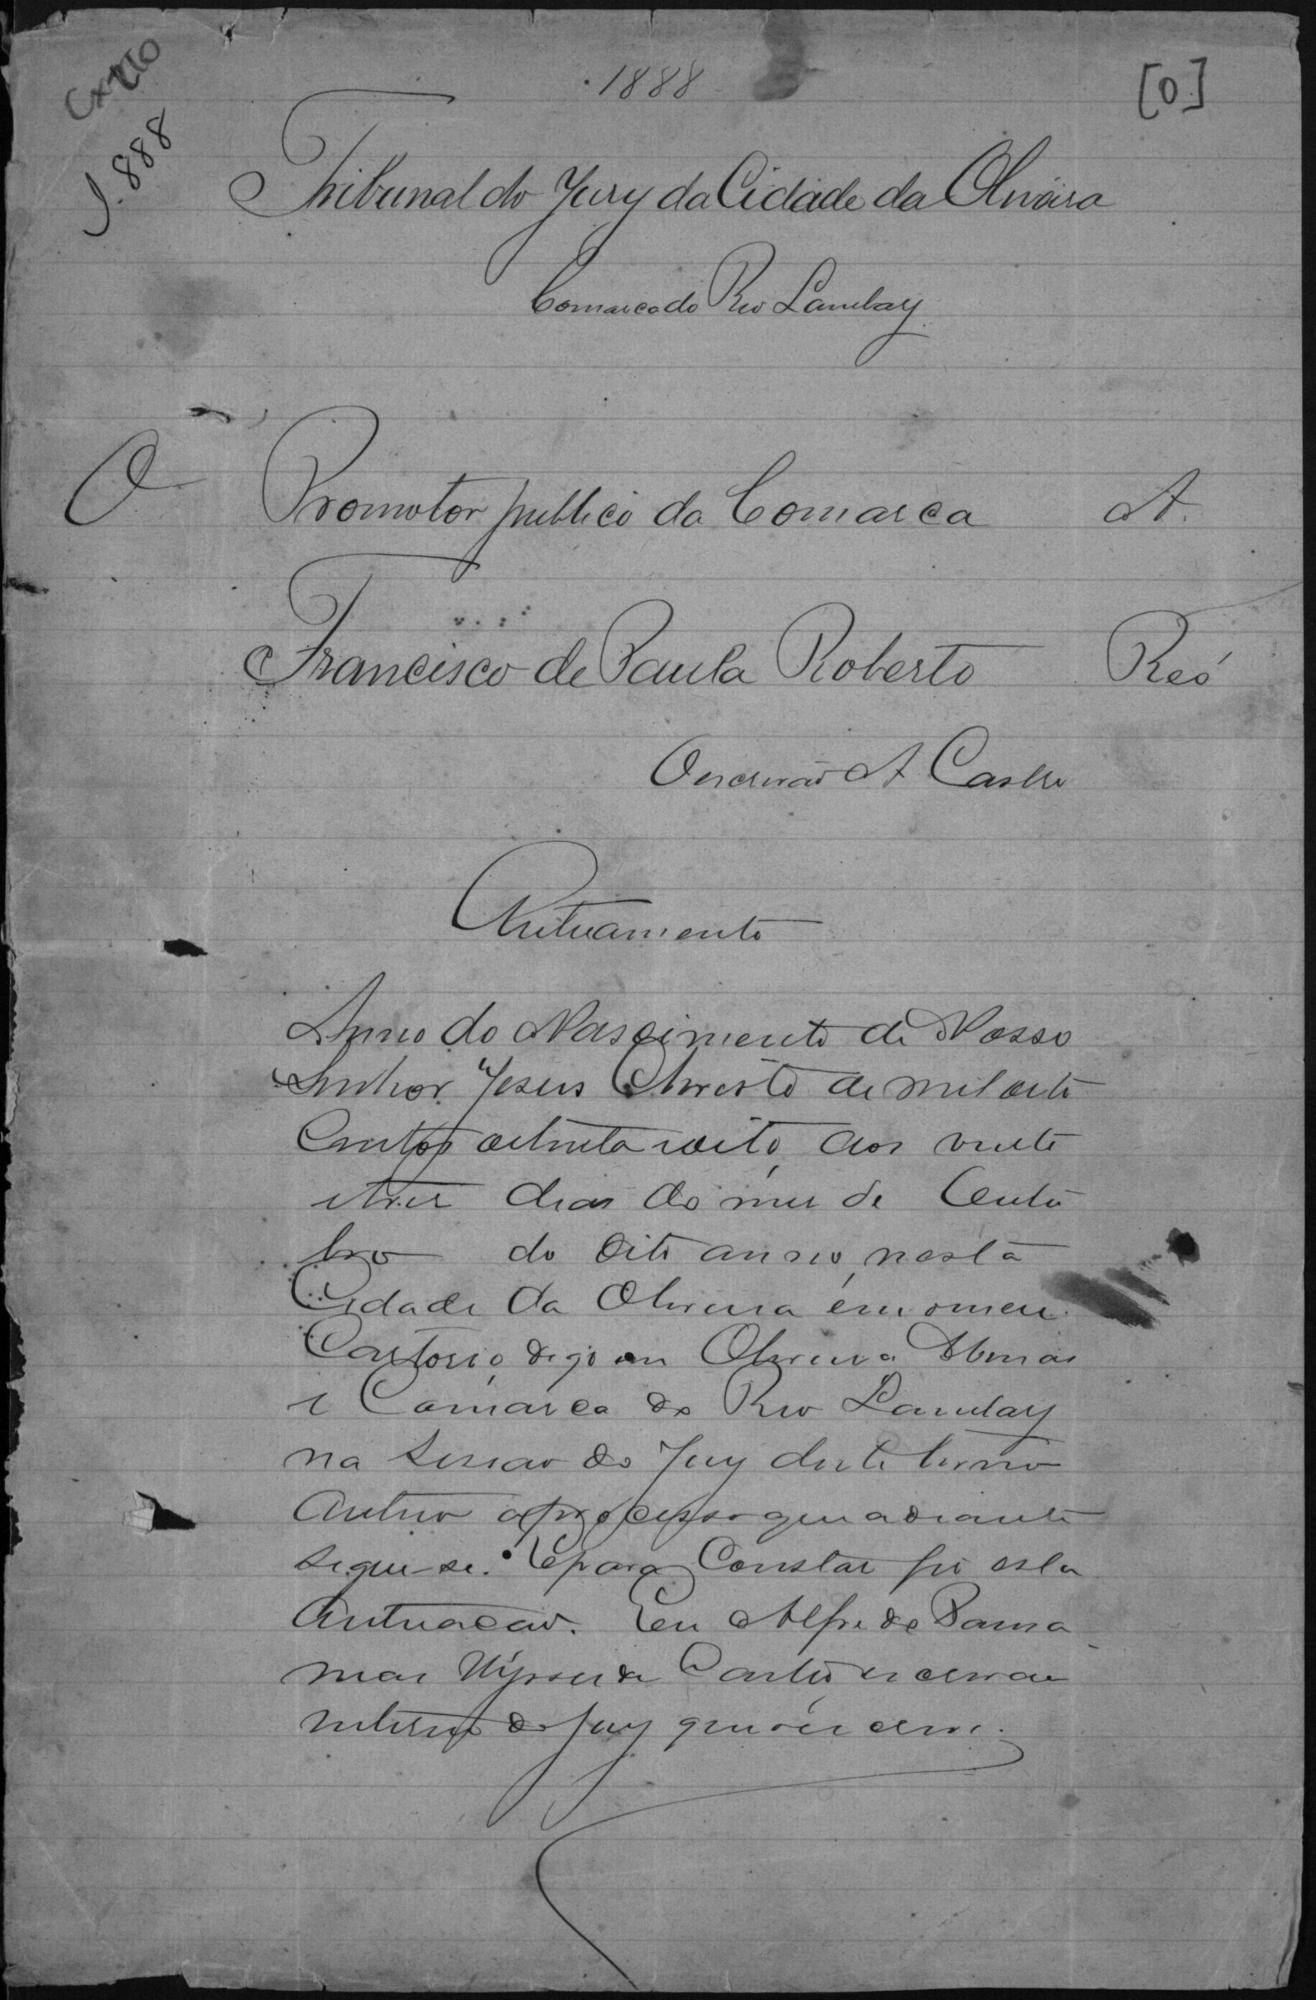 1888
[0]
1.888
Tribunal do Jury da Cidade da Oliveira
Comarca do Rio Lambary
O Promotor publico da Comarca A.
Francisco de Paula Roberto Reó
O escrivão A Castro
Autuamento
Anno do Nascimento de Nosso
Senhor Jesus Christo de mil oito
Centos oitenta e oito, aos vinte
e tres dias do mes de Outu
bro do dito anno, nesta
Cidade da Oliveira em o meu
Cartorio, digo em Oliveira
e Comarca do Rio Lambary
na Sessão do Jury deste termo
Autuo o processo que adiante
segue-se. E para Constar fis esta
Autuacão. Eu Alfredo
de Castro, escrivão
interino do Jury que o escrevi.